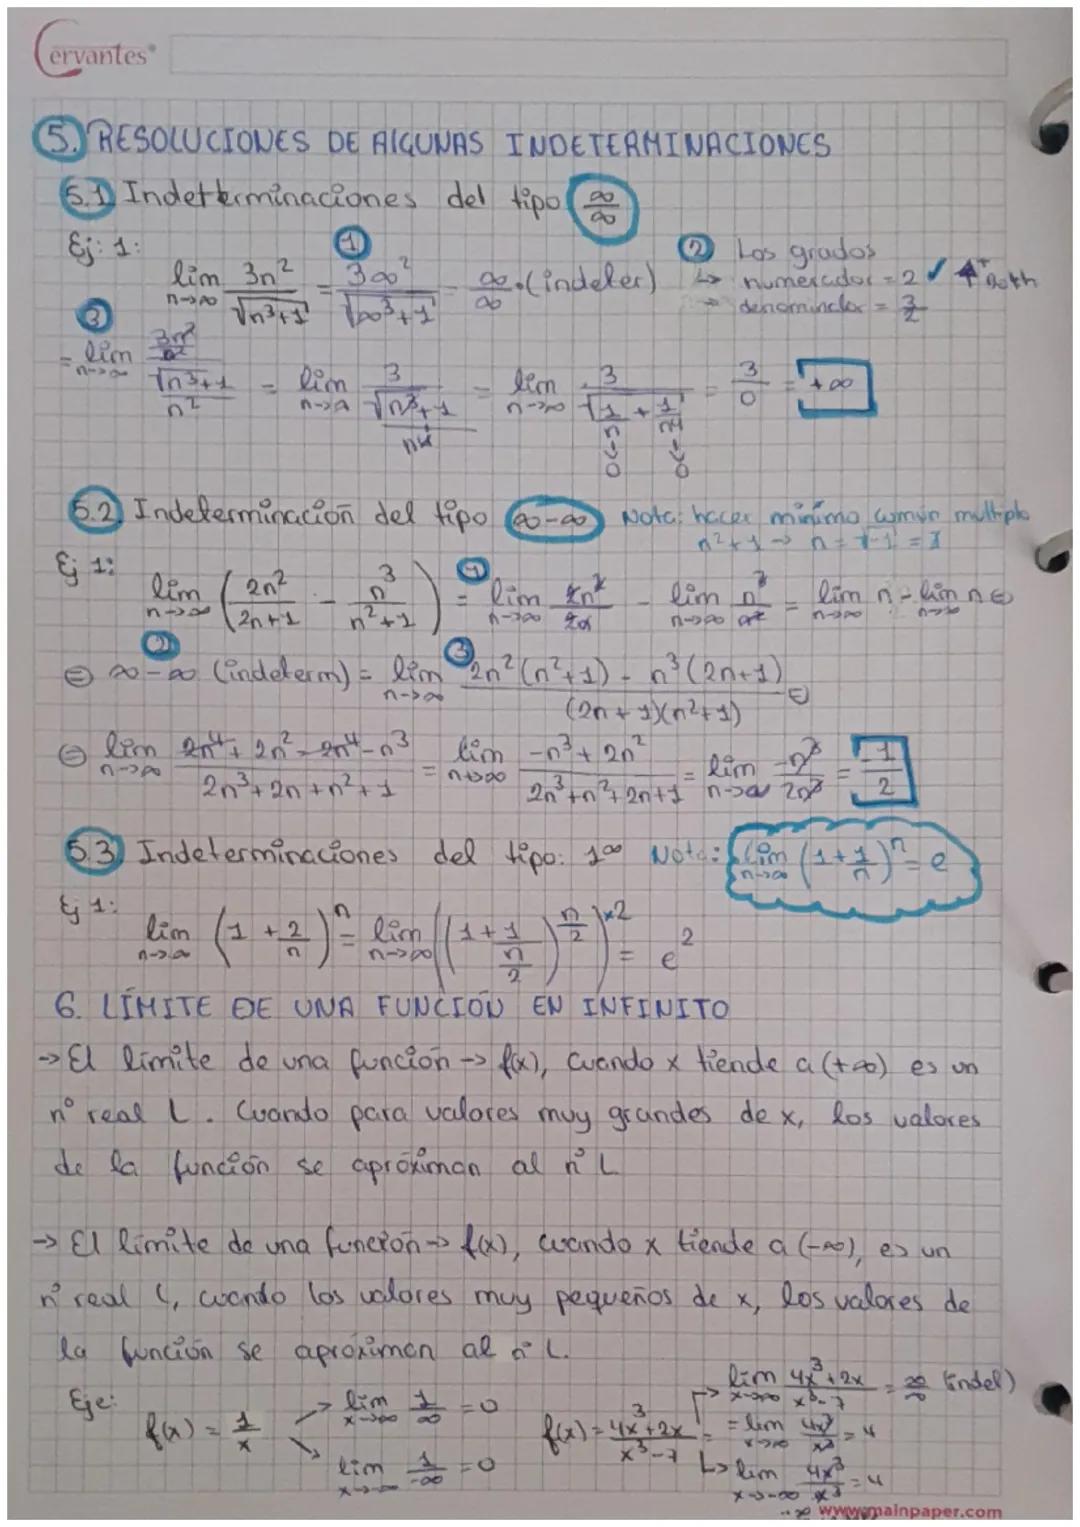 Cervantes
5. RESOLUCIONES DE ALGUNAS INDETERMINACIONES
5.1 Indeterminaciones del tipo ∞/∞
Ej: 1:
① ② Los grados
lim n->∞ 3n²/√(n³+1) = 3∞²/√(∞³+1) = ∞/∞ (indeter) ↳ numerador = 2 ✓
-> denominador = 3/2
③
= lim n->∞ (3n²/n²)/(√(n³+1)/n²) = lim n->∞ 3/√((n³+1)/n⁴) = lim n->∞ 3/√(1/n + 1/n⁴) = 3/0 = +∞
0<- 0<-
5.2 Indeterminación del tipo ∞-∞ Nota: hacer mínimo común multiplo
n²+1 -> n = √-1 = ∄
Ej 1:
lim n->∞ (2n²/(2n+1) - n³/(n²+1)) = ① lim n->∞ 2n²/2n - lim n->∞ n³/n² = lim n->∞ n - lim n->∞ n =
② ③
= ∞-∞ (indeterm) = lim n->∞ (2n²(n²+1) - n³(2n+1))/((2n+1)(n²+1)) =
= lim n->∞ (2n⁴+2n²-2n⁴-n³)/(2n³+2n+n²+1) = lim n->∞ (-n³+2n²)/(2n³+n²+2n+1) = lim n->∞ -n³/2n³ = -1/2
5.3 Indeterminaciones del tipo: 1^∞ Nota: lim n->∞ (1+1/n)ⁿ = e
Ej 1:
lim n->∞ (1+2/n)ⁿ = lim n->∞ ((1+1/(n/2))^(n/2))^x2 = e²
6. LÍMITE DE UNA FUNCIÓN EN INFINITO
-> El límite de una función -> f(x), cuando x tiende a (+∞) es un
nº real L. Cuando para valores muy grandes de x, los valores
de la función se aproximan al nº L
-> El límite de una función -> f(x), cuando x tiende a (-∞), es un
nº real L, cuando los valores muy pequeños de x, los valores de
la función se aproximan al nº L.
Eje:
f(x) = 1/x
-> lim x->∞ 1/∞ = 0
-> lim x->-∞ 1/-∞ = 0
f(x) = (4x³+2x)/(x³-7) =
-> lim x->∞ (4x³+2x)/(x³-7) = ∞/∞ (indet)
= lim x->∞ 4x³/x³ = 4
↳ lim x->-∞ 4x³/x³ = 4
www.mainpaper.com